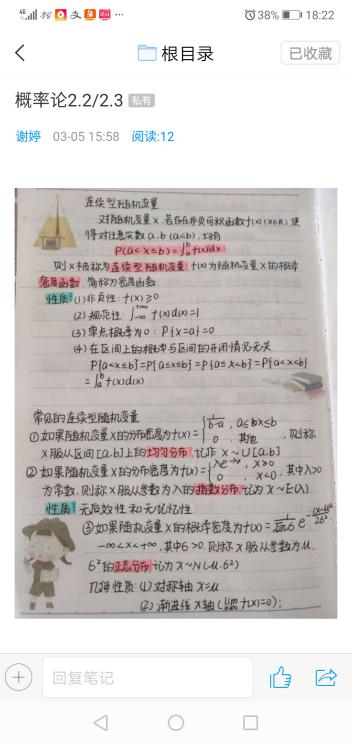 38% 18:22
根目录
已收藏
概率论2.2/2.3 私有
谢婷 03-05 15:58 阅读:12
连续型随机变量
对随机变量X,若存在非负可积函数f(x)(x∈R),使
得对任意实数a,b(a<b),均有
P(a<x≤b)=∫_a^b f(x)dx
则X被称为连续型随机变量,f(x)为随机变量X的概率
密度函数,简称为密度函数
性质:(1)非负性:f(x)≥0
(2)规范性:∫_{-∞}^{+∞} f(x)d(x)=1
(3)单点概率为0:P{x=a}=0
(4)在区间上的概率与区间的开闭情况无关
P{a<x≤b}=P{a≤x≤b}=P{a≤x<b}=P{a<x<b}
=∫_a^b f(x)d(x)
常见的连续型随机变量
①如果随机变量X的分布密度为f(x)={1/(b-a), a≤x≤b
0, 其他, 则称
X服从区间[a,b]上的均匀分布,记作X~U[a,b]
②如果随机变量X的分布密度为f(x)={λe^{-λx}, x≥0
0, x<0, 其中λ>0
为常数,则称X服从参数为λ的指数分布,记为X~E(λ)
性质:无后效性和无记忆性
③如果随机变量X的概率密度为f(x)=
-∞<x<+∞,其中б>0,则称X服从参数为μ,
б²的正态分布,记为X~N(μ,б²)
几何性质:(1)对称轴x=μ
(2)渐进线X轴(lim f(x)=0);
回复笔记